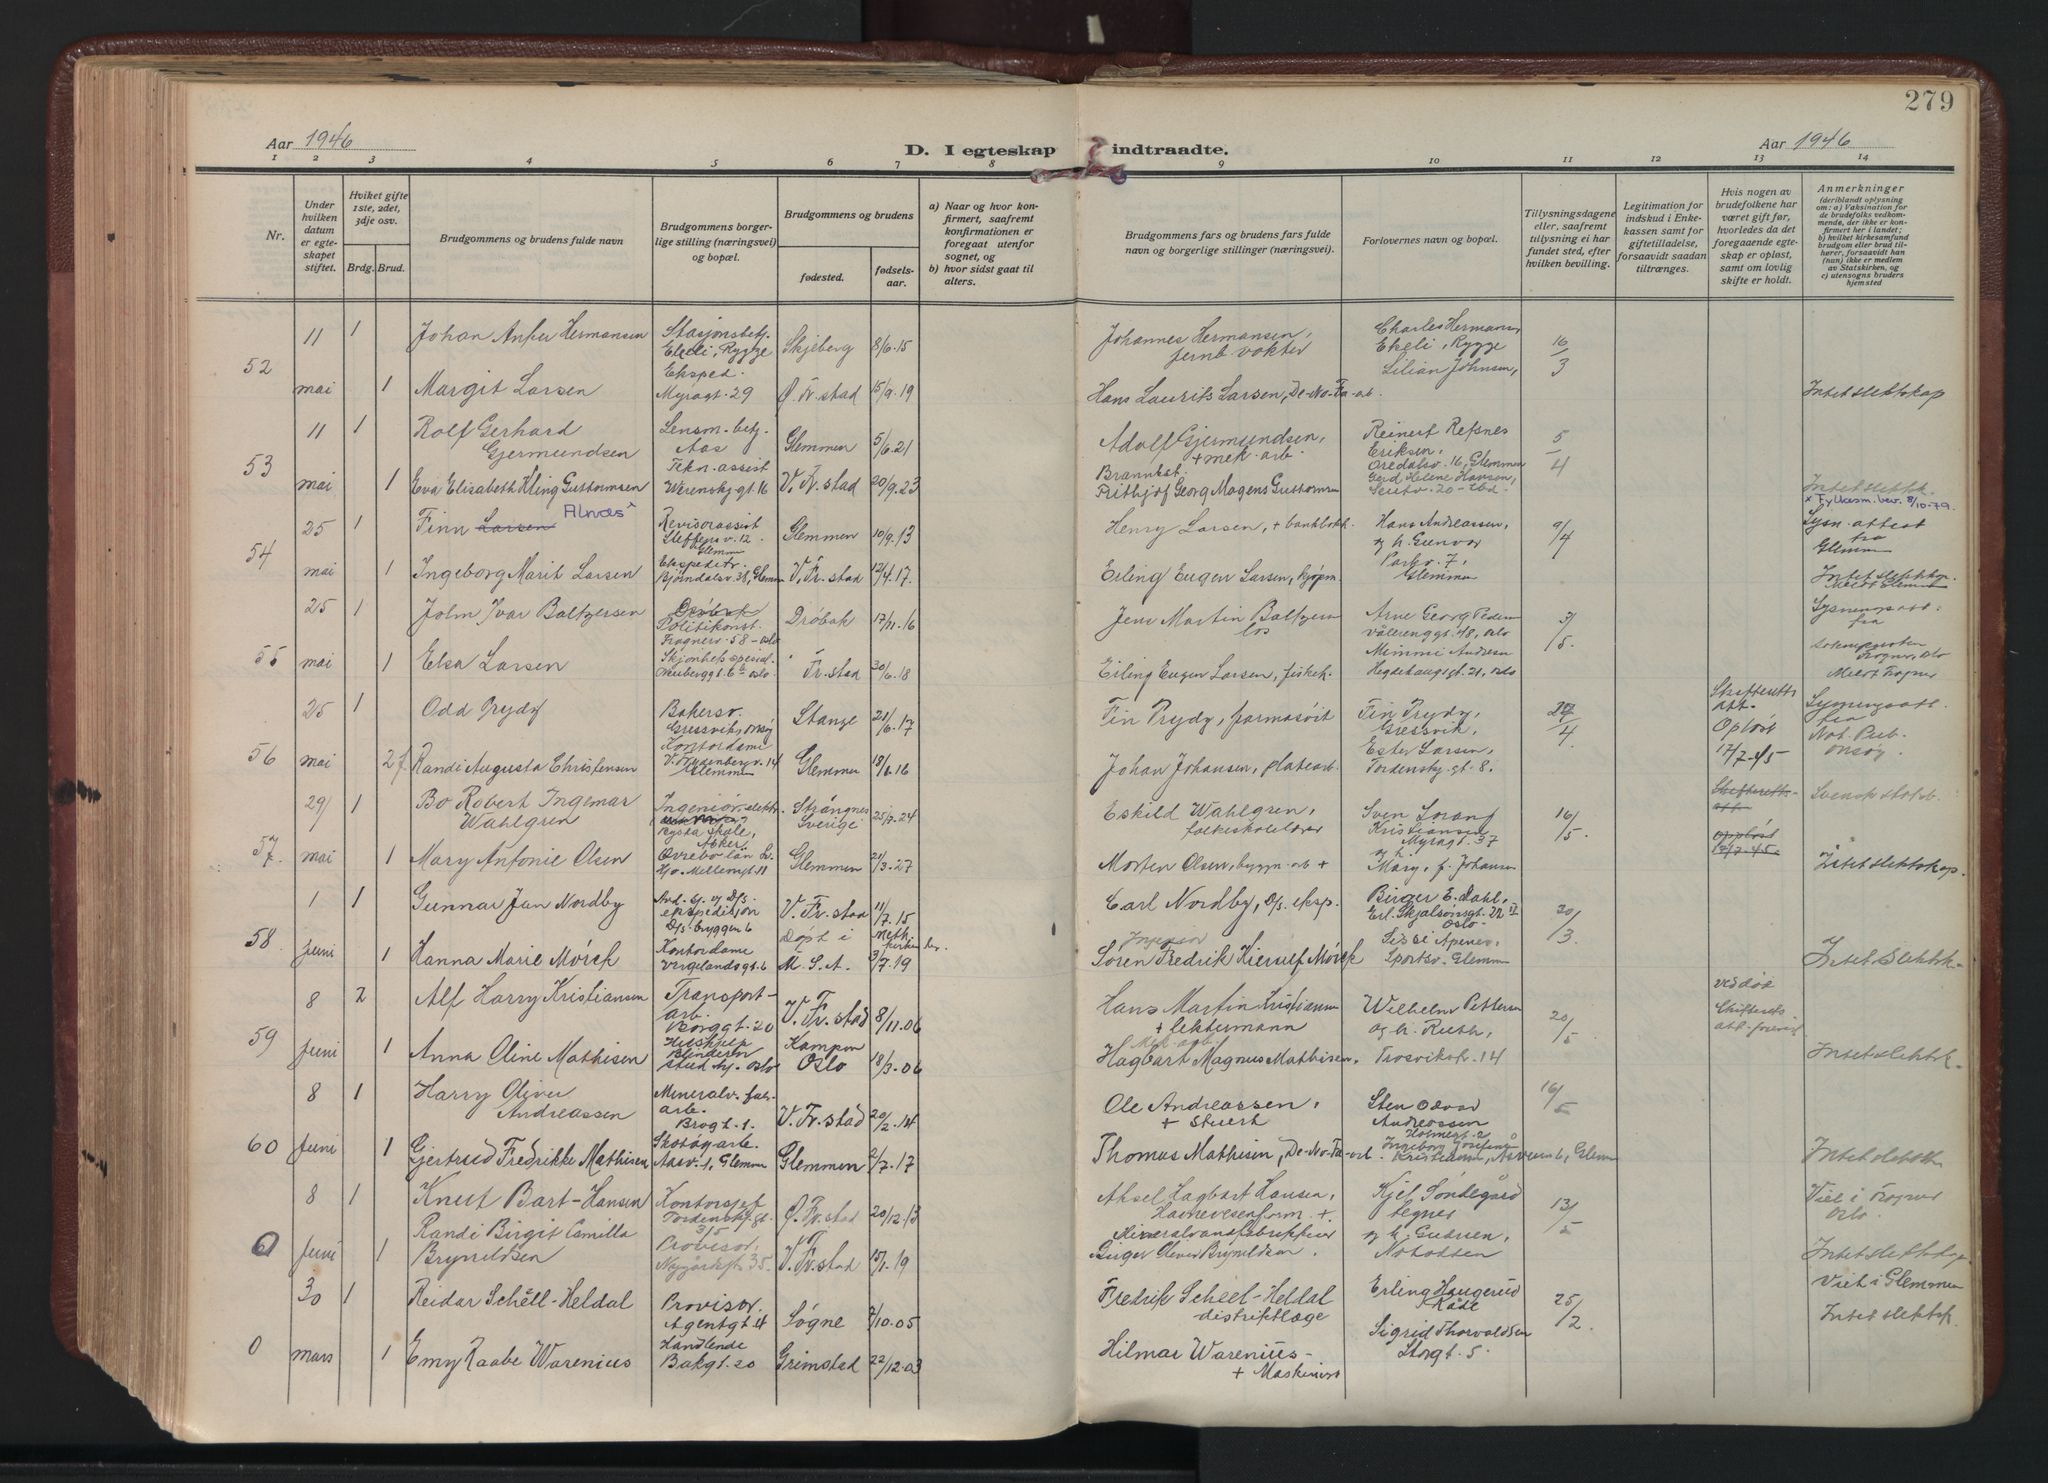 279
Aar 1946
D. I egteskap indtraadte.
Aar 1946
1 2 3 4 5 6 7 8 9 10 11 12 13 14
Nr.
Under hvilken datum er egteskapet stiftet.
Hvilket gifte 1ste, 2det, 3dje osv.
Brdg. Brud.
Brudgommens og brudens fulde navn
Brudgommens borgerlige stilling (næringsvei) og bopæl.
Brudgommens og brudens
fødested.
fødselsaar.
a) Naar og hvor konfirmert, saafremt konfirmationen er foregaat utenfor sognet, og
b) hvor sidst gaat til alters.
Brudgommens fars og brudens fars fulde navn og borgerlige stillinger (næringsvei).
Forlovernes navn og bopæl.
Tillysningsdagene eller, saafremt tillysning ei har fundet sted, efter hvilken bevilling.
Legitimation for indskud i Enkekassen samt for giftetilladelse, forsaavidt saadan tiltrænges.
Hvis nogen av brudefolkene har været gift før, hvorledes da det foregaaende egteskap er opløst, samt om lovlig skifte er holdt.
Anmerkninger (deriblandt oplysning om: a) Vaksination for de brudefolks vedkommende, der ikke er konfirmert her i landet; b) hvilket kirkesamfund brudgom eller brud tilhører, forsaavidt han (hun) ikke er medlem av Statskirken, og c) utensogns bruders hjemsted
52
11 mai
1
Johan Anker Hermansen
Stasjonsbetj. Ekeli, Rygge
Skjeberg 8/6.15
Johannes Hermansen, jernb. vokter
Charles Hermansen, Ekeli, Rygge
16/3
1
Margit Larsen
Eksped. Myragt. 29
Ø. Fr.stad 15/9.19
Hans Laurits Larsen, De-No-Fa-arb.
Lilian Johnsen,
Intet slektskap
53
11 mai
1
Rolf Gerhard Gjermundsen
Lensm. betj. Aas
Glemmen 5/6.21
Adolf Gjermundsen, + mek. arb.
Reinert Refsnes Eriksen, Oredalsv. 16, Glemmen
5/4
1
Eva Elisabeth Kling Guttormsen
Tekn. assist Werenskj. gt. 16
V. Fr.stad 20/9.23
Brannkst. Frithjof Georg Magens Guttormsen
Gerd Helene Hansen,
Intet slektsk.
54
25 mai
1
Finn Larsen Alnæs x
Revisorassist Steffensv. 12 Glemmen
Glemmen 10/9.13
Henry Larsen, + bankbokh.
Hans Andreassen, og h. Gunvor Parkv. 7, Glemmen
9/4
x Fylkesm. bev. 8/10-79.
Lysn. attest fra Glemmen
1
Ingeborg Marit Larsen
Ekspeditr. Bjørndalsv. 38, Glemmen
V. Fr. stad 12/4.17.
Eiling Eugen Larsen, kjøpm.
Intet slektskap. Meldt Glemmen
55
25 mai
1
John Ivar Baltzersen
Drøbak Politikonst. Frognerv. 58 - Oslo
Drøbak 17/11.16
Jens Martin Baltzersen los
Arne Georg Pedersen Vålerenggt. 48, Oslo
3/5.
Lysningsatt. fra
1
Elsa Larsen
Skjønhets spesial.
Fr. stad 30/6.18
Eiling Eugen Larsen, fiskeh.
Mimmi Andresen Hegdehaugsgt. 21, Oslo
Frogner, Oslo
Meldt Frogner
56
25 mai
1
Odd Prydz
Bakersv. Gressvik, Onsøy
Stange 21/6.17
Fin Prydz, farmasøit
Fin Prydz, Gressvik,
27/4.
Skifteretts att.
Oppløst 17/7-45
Lysningsatt. fra Not. Pub. Onsøy
2 f
Randi Augusta Christensen
Kontordame
Glemmen
Glemmen 18/6.16
Johan Johansen, platearb.
Ester Larsen, Tordenskj. gt. 8.
57.
29/ mai
1
Bo Robert Ingemar Wahlgren
Ingeniør, elektr.
Strängnes Sverige 25/7.24
Eskild Wahlgren, folkeskolelærer
Sven Lorang Kristiansen Myragt. 37
16/5.
Skifteretts. att.
oppløst 17/7.45.
Svensk statsb.
1
Mary Antonie Olsen
Glemmen 21/3.27
Morten Olsen, byggn. arb +
og h. Mary, f. Johansen
Intet slektskap.
58.
1 Juni
1
Gunnar Jan Nordby
ekspedisjon D/S. bryggen 6
V. Fr. stad 11/7.15
Carl Nordby, D/S. eksp.
Birger E. Dahl, Erl. Skjalsønsgt. 22 Oslo
20/3.
1
Hanna Marie Mørck
Kontordame Vergelandsgt. 6
Døpt i Meth. kirken
U. S. A. 3/7.19
Søren Fredrik Kierulf Mørck
Sissi Apenes, Sportsv. Glemmen
Intet slektsk.
59
8 Juni
2
Alf Harry Kristiansen
Transport-arb. Borggt. 20
V. Fr. stad 8/11.06
Hans Martin Kristiansen + lektermann
Wilhelm Pettersen og h. Ruth, Trosvikstr. 14
20/5
ved død
Skifteretts att.
1
Anna Oline Mathisen
Oslo
Kampen Oslo 18/3.06
Mek. arb. Hagbart Magnus Mathisen,
Intet slektsk.
60
8 Juni
1
Harry Oliver Andreassen
Mineralv. fabr. arb. Brogt. 1.
V. Fr. stad 20/2.14
Ole Andreassen, + stuert
Sten Oddvar Andreassen Holmegt. 2
16/5
1
Gjertrud Fredrikke Mathisen
Skotøyarb. Aasv. 1, Glemmen
Glemmen 2/7.17
Thomas Mathisen, De-No-Fa-arb.
Ingeborg Josefine Kristiansen, Glemmen
Intet slektsk
61
8 Juni
1
Knut Bart-Hansen
Kontorsjef Tordenskj. gt.
Ø. Fr. stad 20/12.13
Aksel Hagbart Hansen, Havnevesenform. +.
Kjel Søndegård tegner
13/5
Viet i Frogner Oslo.
1
Randi Birgit Camilla Brynildsen
Provisor, Nygårdsgt. 35.
V. Fr. stad 15/1.19
Mineralvansfabrikkeier Birger Oliver Brynildsen.
og h. Gudrun, Notodden
Intet slektskap
0
30 mars
1
Reidar Schéll-Heldal
Provisor. Agentgt. 4
Søgne 7/10.05
Fredrik Scheel-Heldal distriktlæge
Erling Haugerud Råde
25/2.
Viet i Glemmen
Intet slektsk
1
Emy Raabe Warenius
Handlende Bakgt. 20
Grimstad 22/12.03
Hilmar Warenius- + Maskinist
Sigrid Thorvaldsen Storgt. 5.